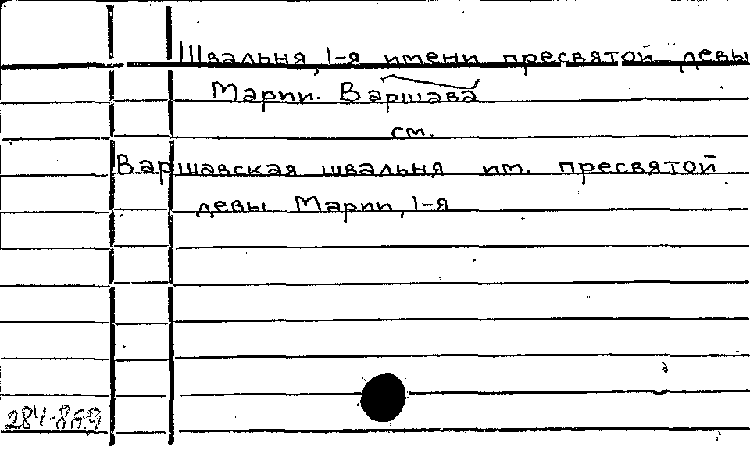 Швальня, 1-я имени пресвятой девы
Марии. Варшава
см.
Варшавская швальня им. пресвятой
девы Марии, 1-я